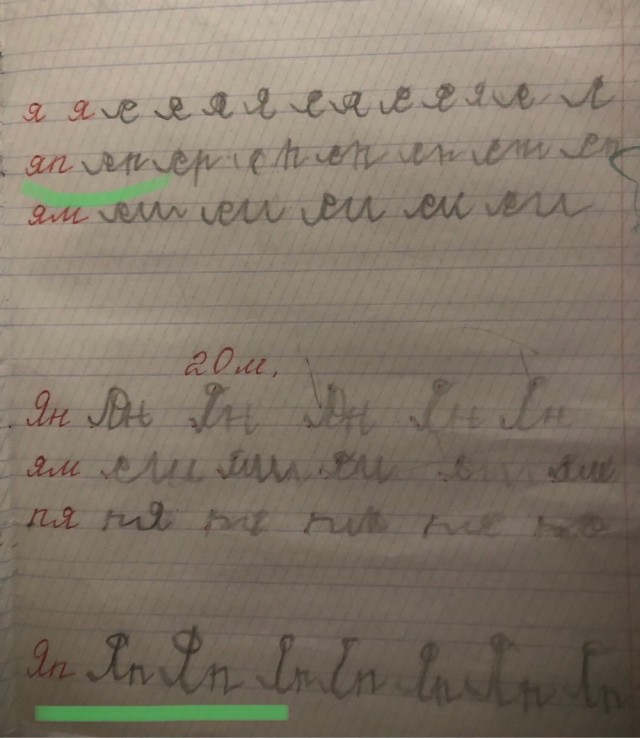 я я я я я я я я я я я я я
яп яп яп яп яп яп яп яп
ям ям ям ям ям ям
20 м.
Ян Ян Ян Ян Ян Ян
ям ям ям ям ям
пя пя пя пя пя пя
Яп Яп Яп Яп Яп Яп Яп Яп